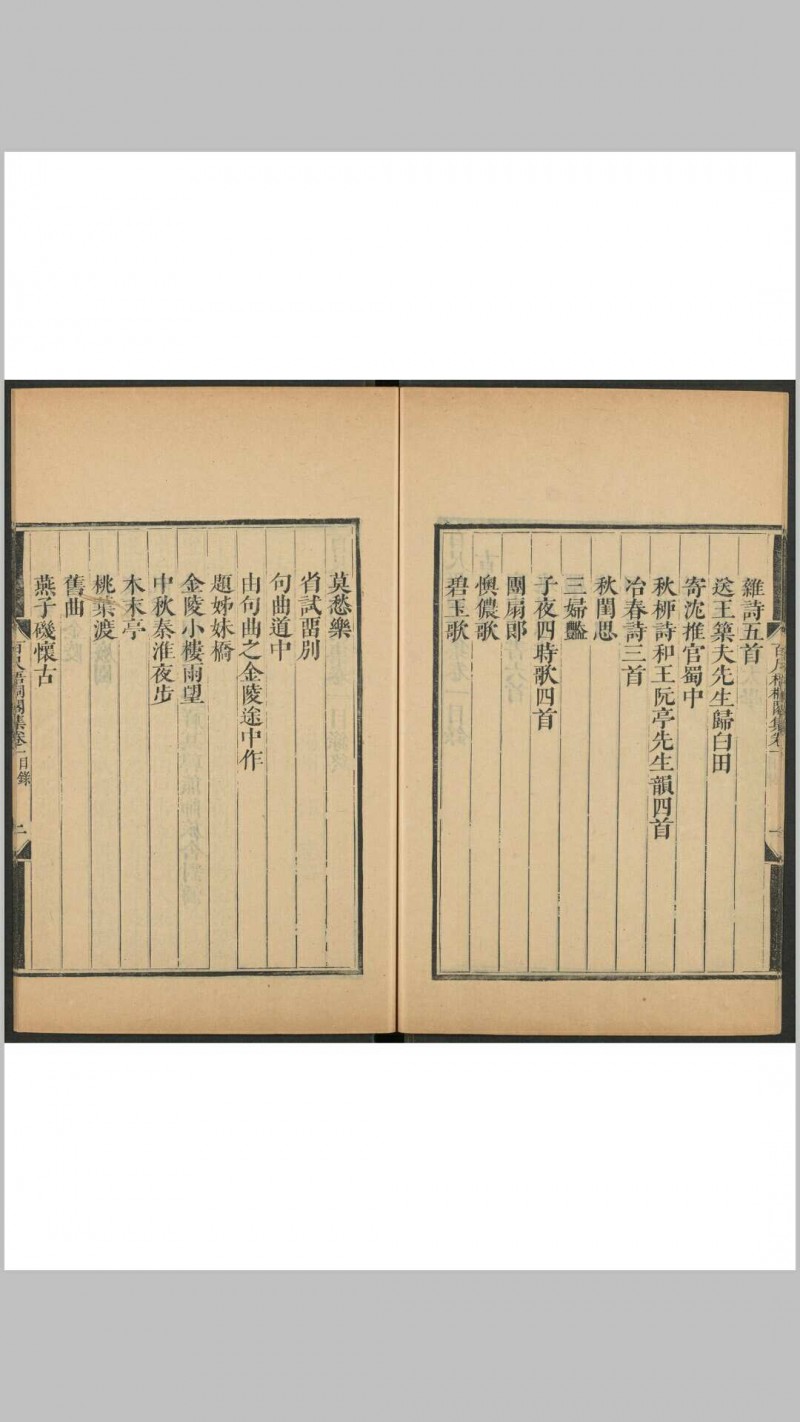 雜詩五首
送王築夫先生歸白田
寄沈推官蜀中
秋柳詩和王阮亭先生韻四首
冶春詩三首
秋閨思
三婦豔
子夜四時歌四首
團扇郎
懊儂歌
碧玉歌
莫愁樂
省試畱別
句曲道中
由句曲之金陵途中作
題姊妹橋
金陵小樓雨望
中秋秦淮夜步
木末亭
桃葉渡
舊曲
燕子磯懷古
百尺梧桐閣集卷一目錄
二